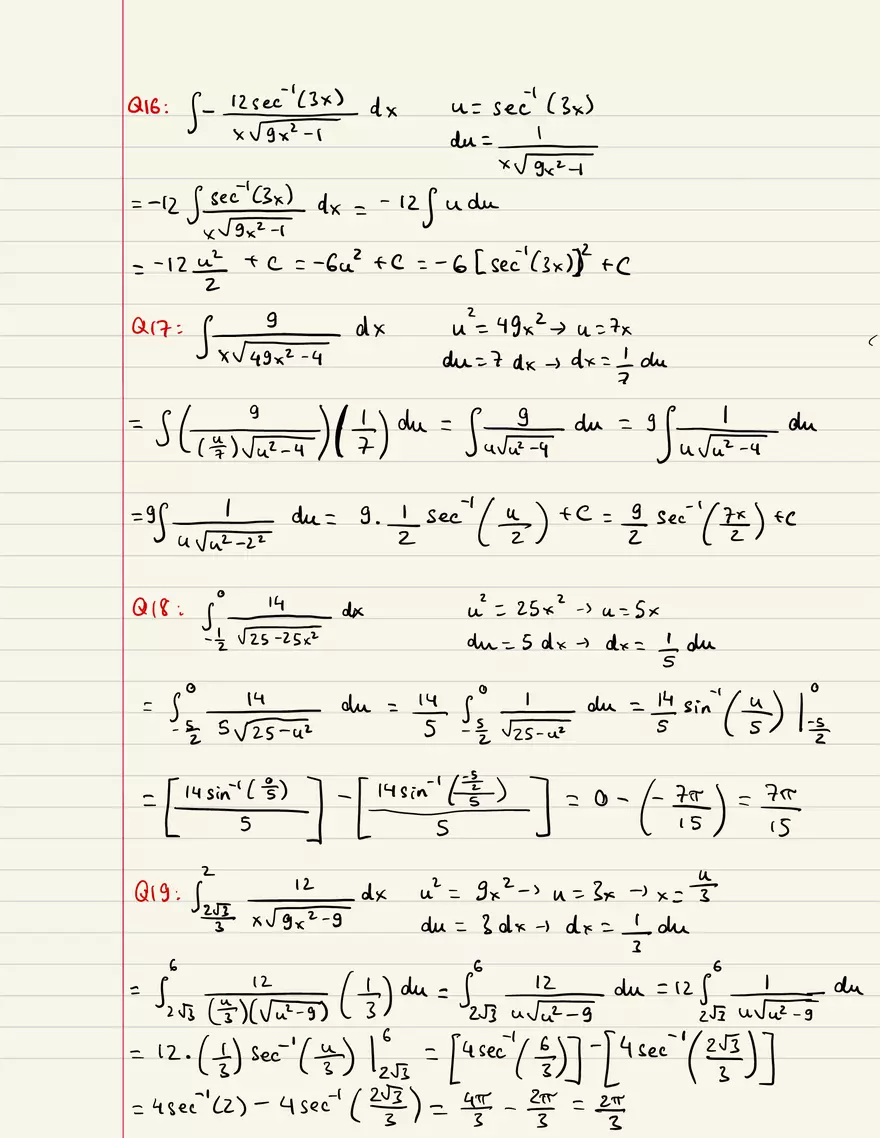 Q16: ∫ - 12sec⁻¹(3x) / x√(9x²-1) dx    u = sec⁻¹(3x)
du = 1 / x√(9x²-1)
= -12 ∫ sec⁻¹(3x) / x√(9x²-1) dx = -12 ∫ u du
= -12 u²/2 + C = -6u² + C = -6[sec⁻¹(3x)]² + C
Q17: ∫ 9 / x√(49x²-4) dx    u² = 49x² → u = 7x
du = 7 dx → dx = 1/7 du
= ∫ (9 / (u/7)√(u²-4)) (1/7) du = ∫ 9 / u√(u²-4) du = 9 ∫ 1 / u√(u²-4) du
= 9 ∫ 1 / u√(u²-2²) du = 9 · 1/2 sec⁻¹(u/2) + C = 9/2 sec⁻¹(7x/2) + C
Q18: ∫_{-1/2}^{0} 14 / √(25-25x²) dx    u² = 25x² → u = 5x
du = 5 dx → dx = 1/5 du
= ∫_{-5/2}^{0} 14 / 5√(25-u²) du = 14/5 ∫_{-5/2}^{0} 1 / √(25-u²) du = 14/5 sin⁻¹(u/5) |_{-5/2}^{0}
= [14 sin⁻¹(0/5) / 5] - [14 sin⁻¹((-5/2)/5) / 5] = 0 - (-7π/15) = 7π/15
Q19: ∫_{2√3/3}^{2} 12 / x√(9x²-9) dx    u² = 9x² → u = 3x → x = u/3
du = 3 dx → dx = 1/3 du
= ∫_{2√3}^{6} 12 / (u/3)(√(u²-9)) (1/3) du = ∫_{2√3}^{6} 12 / u√(u²-9) du = 12 ∫_{2√3}^{6} 1 / u√(u²-9) du
= 12 · (1/3) sec⁻¹(u/3) |_{2√3}^{6} = [4sec⁻¹(6/3)] - [4sec⁻¹(2√3/3)]
= 4sec⁻¹(2) - 4sec⁻¹(2√3/3) = 4π/3 - 2π/3 = 2π/3